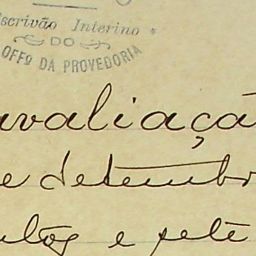 Escrivão Interino
DO
OFFº DA PROVEDORIA
avaliaçã
e desembr
ntos e sete